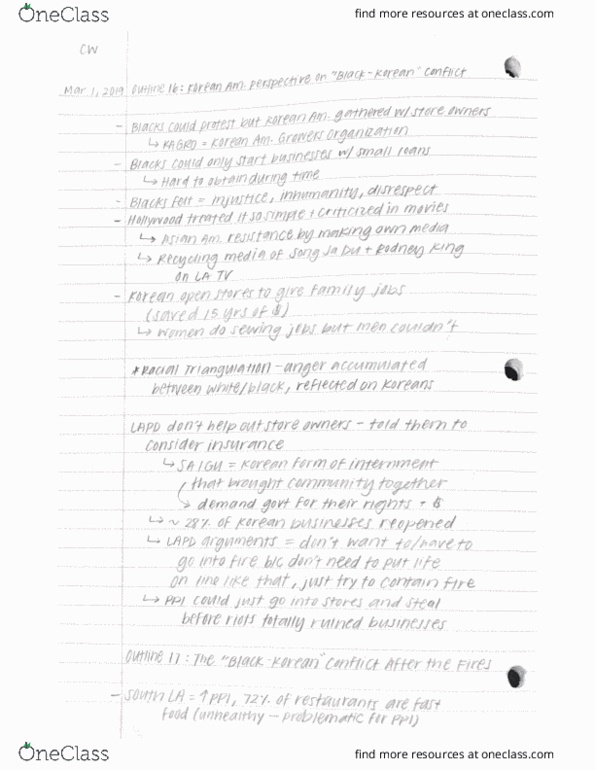 OneClass
find more resources at oneclass.com
CW
Mar. 1, 2019 Outline 16: Korean Am. perspective on "Black-Korean" Conflict
- Blacks could protest but Korean Am. gathered w/ store owners
↳ KAGRO = Korean Am. Growers Organization
- Blacks could only start businesses w/ small loans
↳ Hard to obtain during time
- Blacks Felt = injustice, inhumanity, disrespect
- Hollywood treated it so simple + criticized in movies
↳ Asian Am. resistance by making own media
↳ Recycling media of Song Ja Du + Rodney King
on LA TV
- Korean open stores to give family jobs
(saved 15 yrs of $)
↳ Women do sewing jobs but men couldn't
* Racial Triangulation - anger accumulated
between white/black, reflected on Koreans
LAPD don't help out store owners - told them to
consider insurance
↳ SAIGU = Korean form of internment
that brought community together
↳ demand govt for their rights + $
↳ ~ 28% of Korean businesses reopened
↳ LAPD arguments = don't want to/have to
go into fire b/c don't need to put life
on line like that, just try to contain fire
↳ PPl could just go into stores and steal
before riots totally ruined businesses
Outline 17: The "Black-Korean" Conflict After the Fires
- South LA = ↑ PPl, 72% of restaurants are fast
food (unhealthy - problematic for PPl)
OneClass
find more resources at oneclass.com